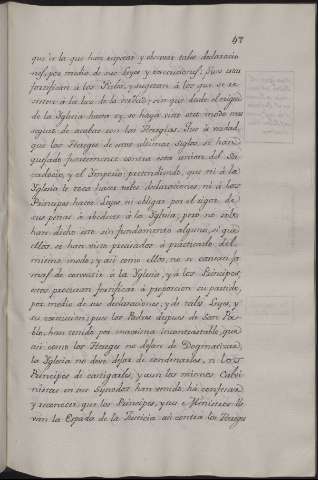 47
que à la que han expedir y deven tales declaracio
nes, por medio de sus Leyes y execuciones; Pues esto
fortifican à los Fieles, y sugetan à los que se re
sisten à la luz de la verdad; sin que desde el origen
de la Yglesia hasta oy, se haya visto otro modo mas
seguro de acabar con las Heregias. Que à verdad,
que los Hereges de estos ultimos siglos se han
quejado fuertemente contra esta union del Sa
cerdocio, y el Ymperio; pretendiendo, que ni à la
Yglesia le toca hacer tales declaraciones, ni à los
Principes hacer Leyes, ni obligar por el rigor de
sus penas à obedecer à la Yglesia; pero no solo
han dicho esto sin fundamento alguno, si que
ellos se han visto precisados à practicarlo del
mismo modo; y asi como ellos, no se cansan ja
mas de convertir à la Yglesia, y à los Principes,
estos procuran fortificar à proporcion su partido,
por medio de sus declaraciones, y de tales Leyes, y
su execucion; pues los Padres despues de San Pa
blo, han tenido por maxima incontrastable, que
asi como los Hereges no dejan de Dogmatizar,
la Yglesia no deve dejar de condenarlos, ni los
Principes de castigarlos; y aun los mismos Calvi
nistas en sus Synodos han venido hà confesar,
y reconocer que los Principes, y sus Ministros de
ven la Espada de la Justicia asi contra los Hereges